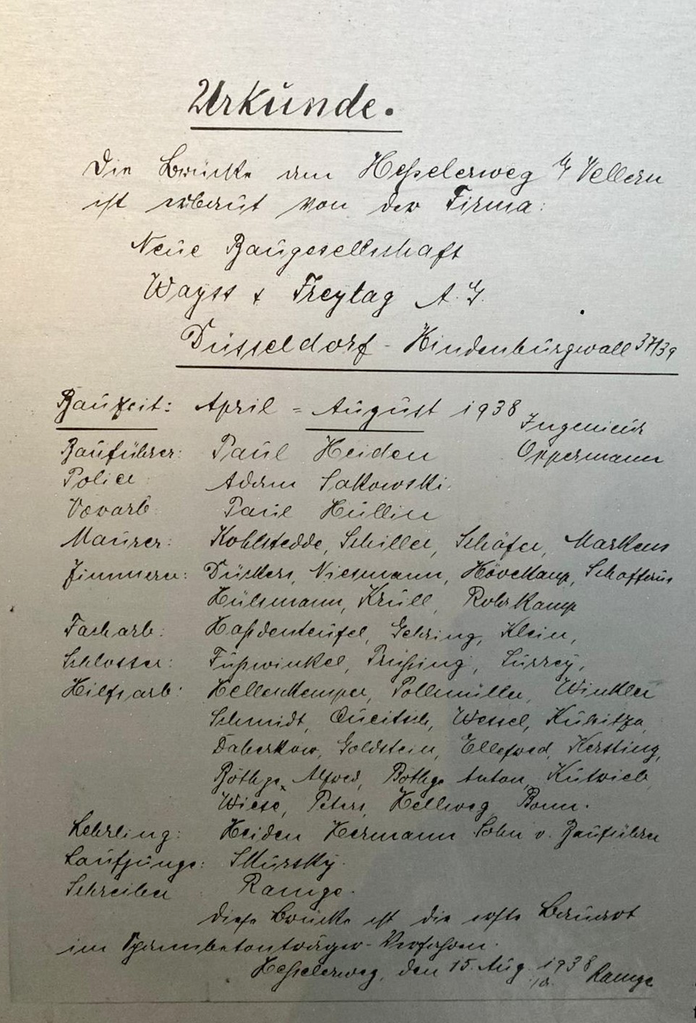 Urkunde.
Die Brücke am Hesselerweg b/ Vellern
ist erbaut von der Firma:
Neue Baugesellschaft
Wayss & Freytag A. G.
Düsseldorf - Hindenburgwall 37/39
Bauzeit: April = August 1938 Ingenieur
Bauführer: Paul Heiden Oppermann
Polier: Adam Sakowski.
Vorarb: Paul Hüllin
Maurer: Kohlstedde, Schiller, Schäfer, Markens
Zimmerer: Dückers, Niesmann, Hövekamp, Schafferus
Hülsmann, Krüll, Rohrkamp
Facharb: Haßdenteufel, Gehring, Klein,
Schlosser: Fußwinkel, Prüßing, Surrey,
Hilfsarb: Hellenkemper, Pollmüller, Winkler
Schmidt, Queitsch, Wessel, Kubitza,
Daberkow, Goldstein, Kersting,
Böthge Alfred, Böthge Anton,
Wiese, Peters, Hellweg Bonn.
Lehrling: Heiden Hermann Sohn v. Bauführer
Laufjunge: Skursky.
Schreiber Ramge.
Diese Brücke ist die erste Bauart
im Spannbetonträger-Verfahren.
Hesselerweg, den 15. Aug. 1938 Ramge